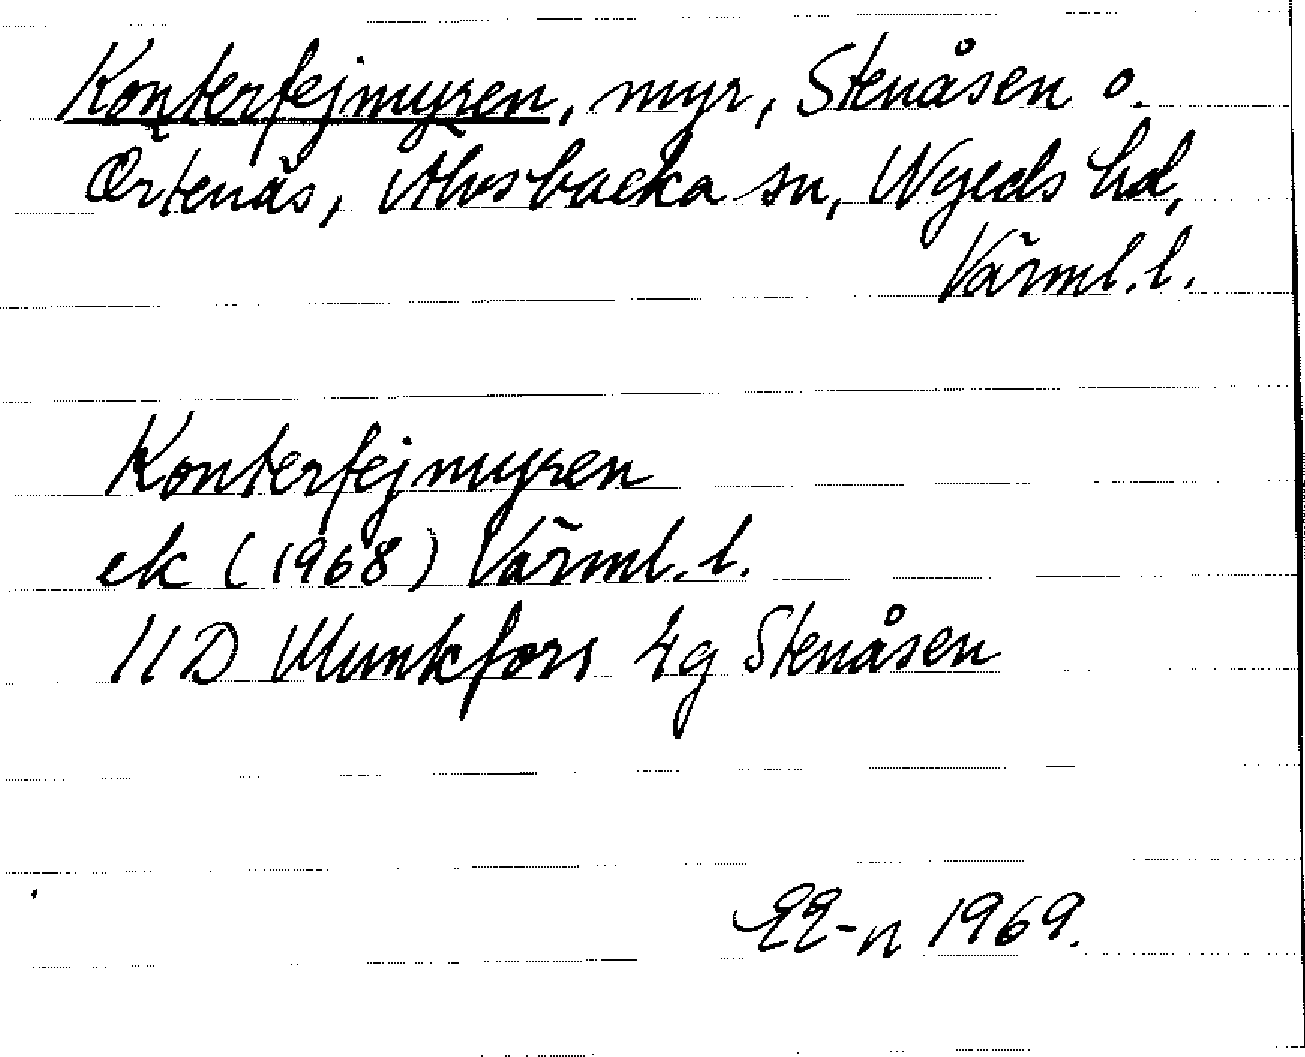 Konterfejmyren, myr, Stenåsen o.
Örtenäs, Älvsbacka sn, Nyeds hd,
Värml. l.
Konterfejmyren
ek (1968) Värml. l.
11D Munkfors 4g Stenåsen
EE-n 1969.